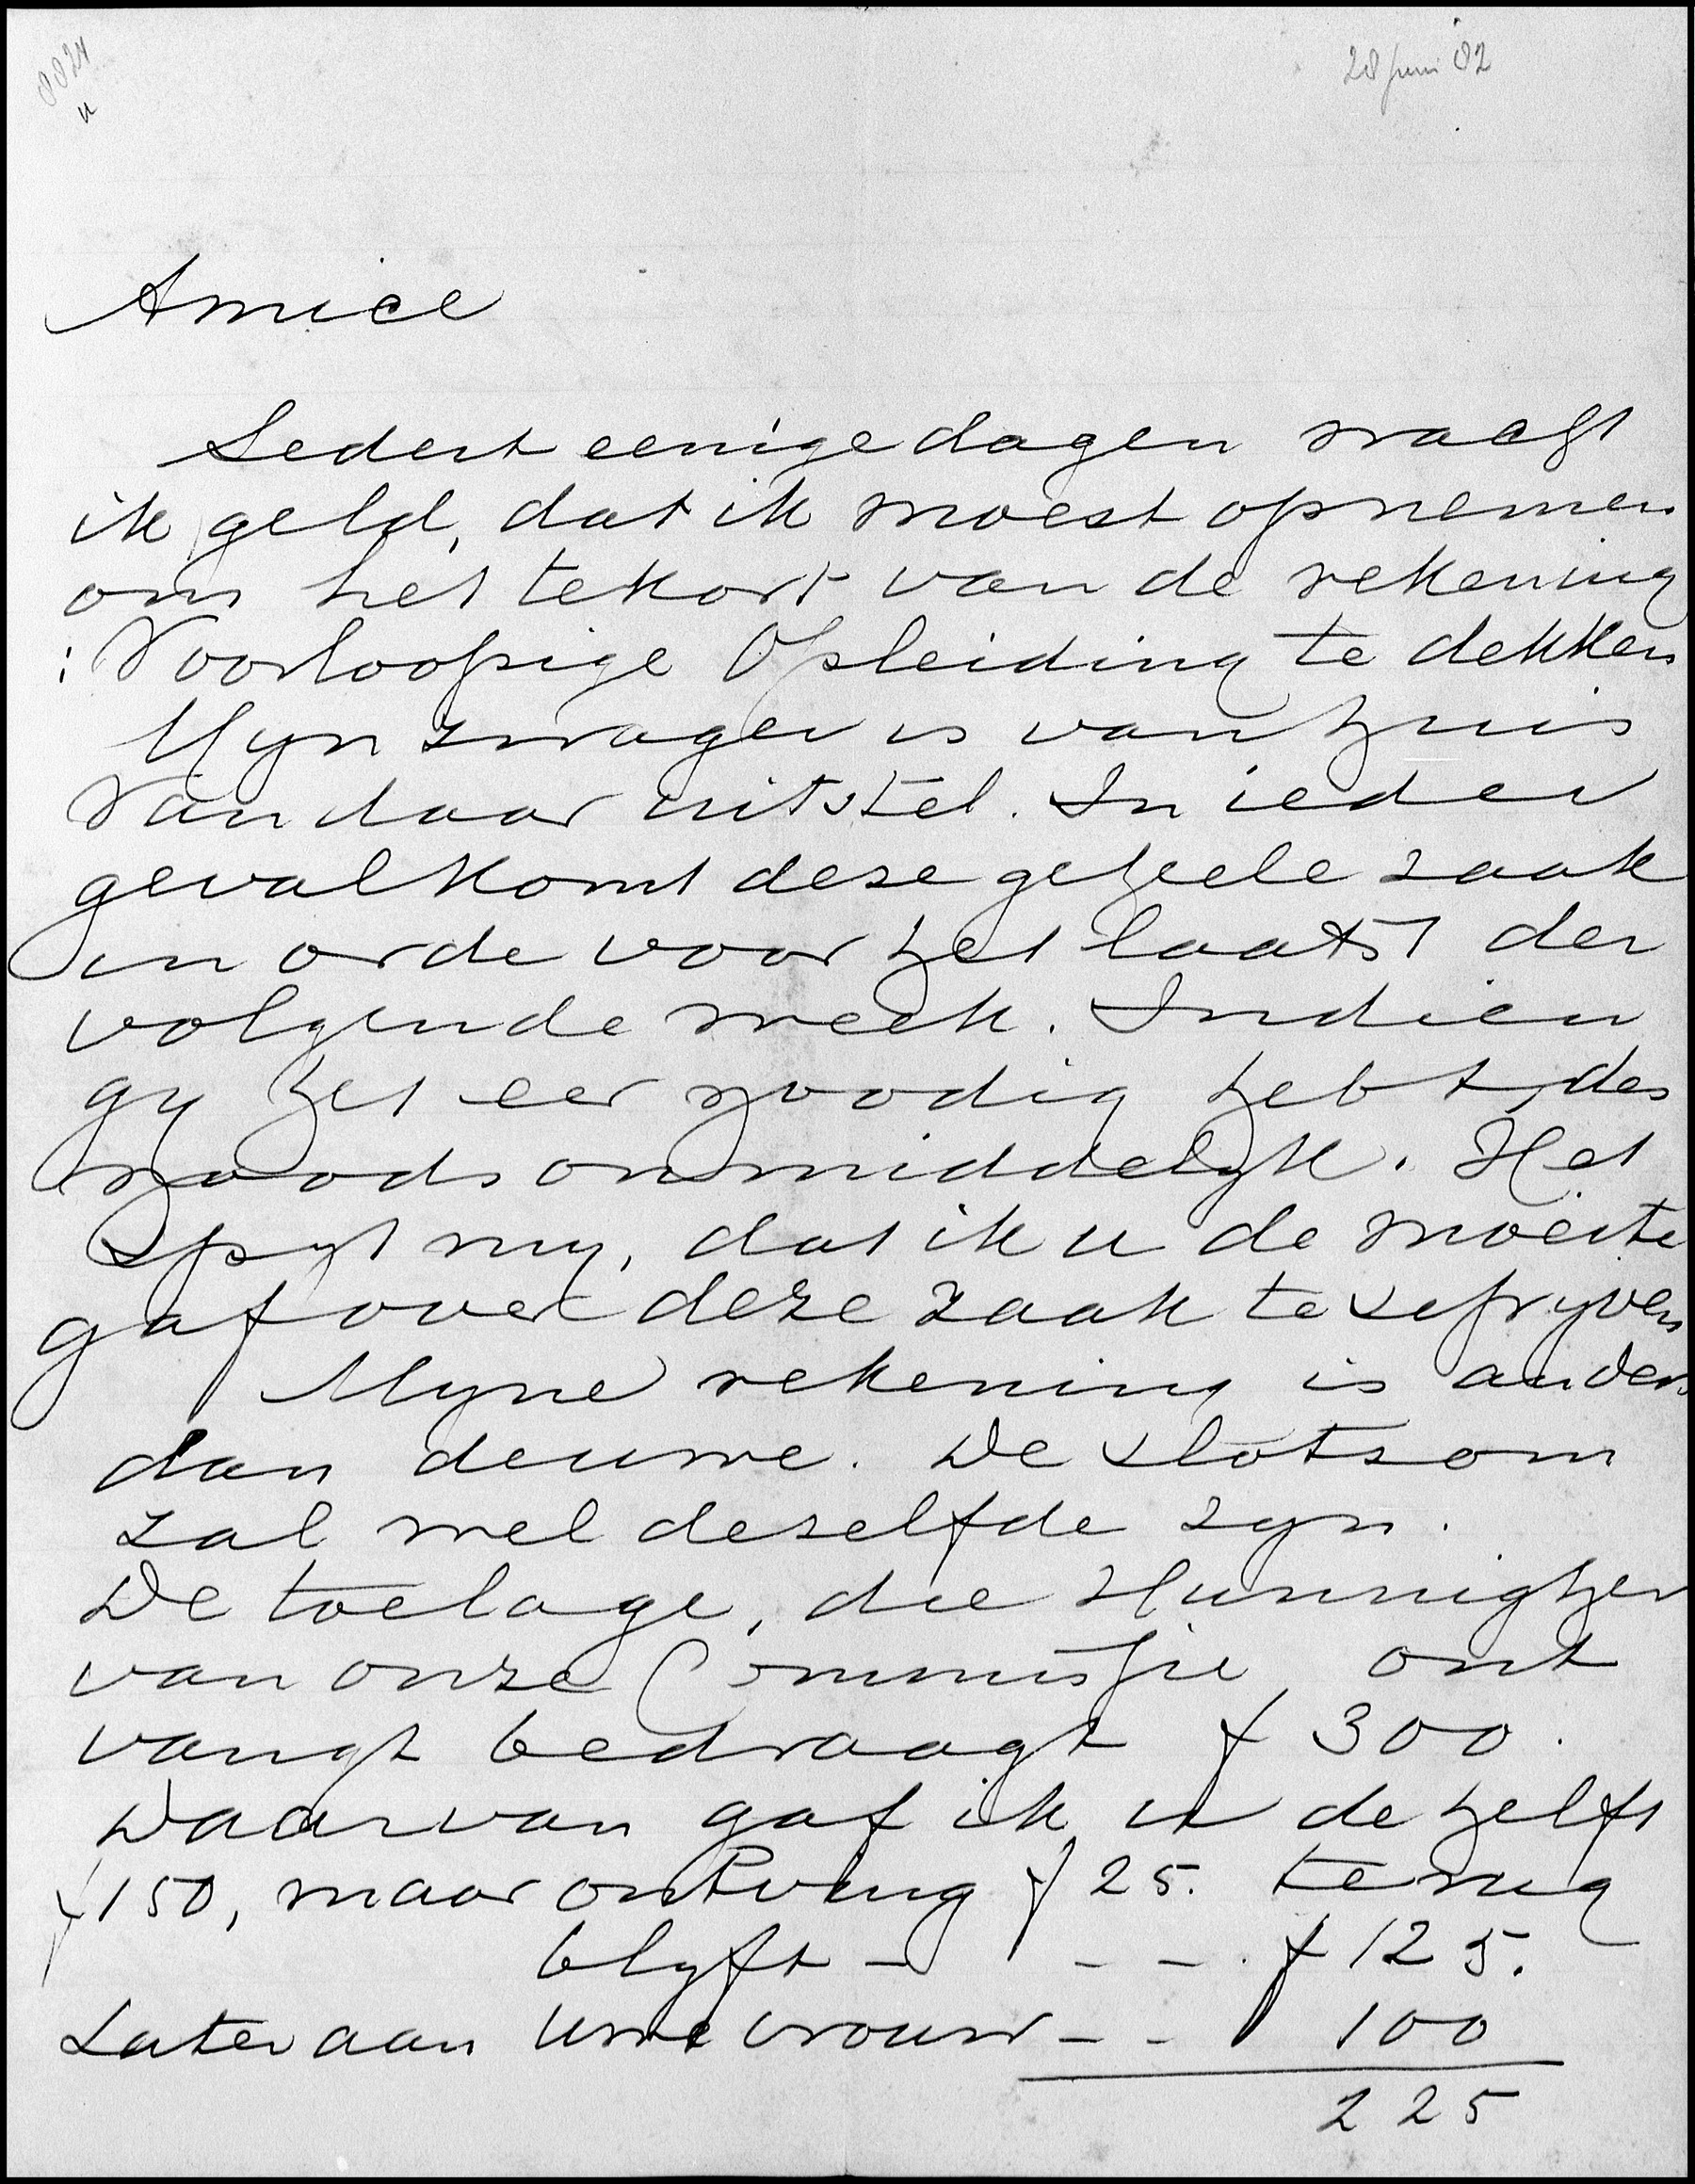 28 Juni 82
Amice
Sedert eenige dagen wacht
ik geld, dat ik moest opnemen
om het tekort van de rekening
: Voorloopige Opleiding te dekken
Myn zwager is van huis
Van daar uitstel. In ieder
geval komt deze geheele zaak
in orde voor het laatst der
volgende week. Indien
gy het eer noodig hebt, des
noods onmiddelyk. Het
spyt my, dat ik u de moeite
gaf over deze zaak te schryven
Myne rekening is anders
dan de uwe. De slotsom
zal wel dezelfde zyn.
De toelage, die Hunnigher
van onze Commissie ont
vangt bedraagt f 300.
Daarvan gaf ik u de helft
f 150, maar ontving f 25. terug
blyft - - - . f 125.
Later aan uwe vrouw - - 100
225